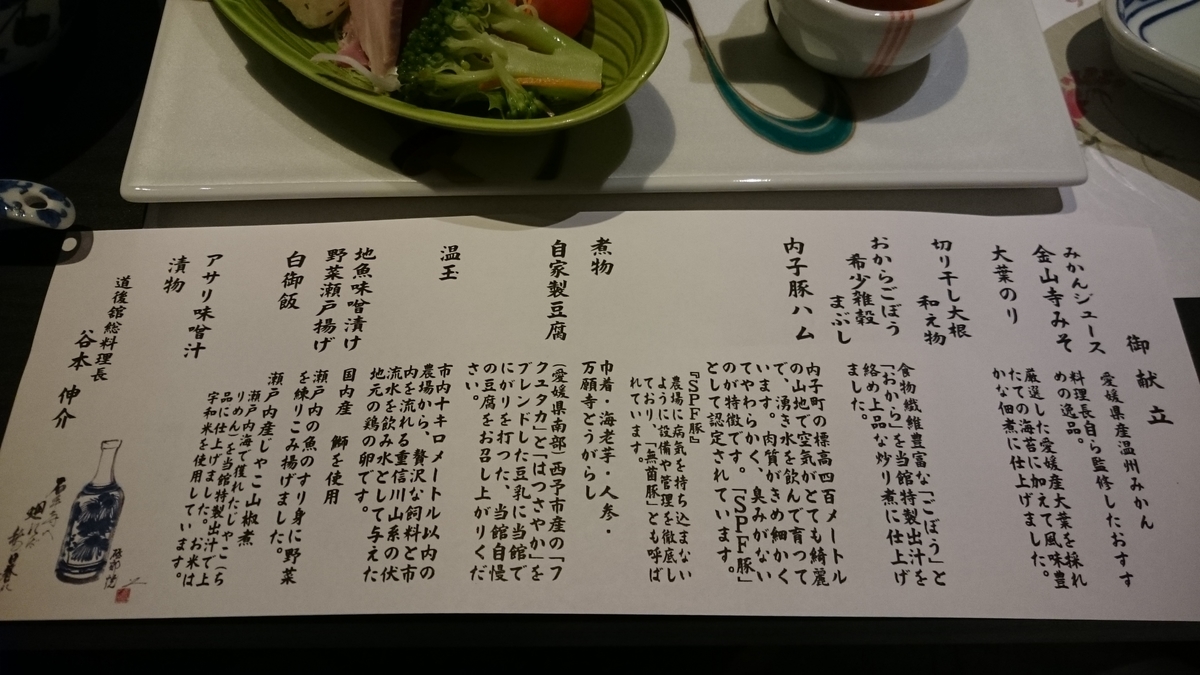 御献立
みかんジュース
愛媛県産温州みかん
金山寺みそ
料理長自ら監修したおすす
めの逸品。
大葉のり
厳選した愛媛産大葉を採れ
たての海苔に加えて風味豊
かな佃煮に仕上げました。
切り干し大根
和え物
おからごぼう
希少雑穀
まぶし
食物繊維豊富な「ごぼう」と
「おから」を当館特製出汁を
絡め上品な炒り煮に仕上げ
ました。
内子豚ハム
内子町の標高四百メートル
の山地で空気がとても綺麗
で、湧き水を飲んで育って
います。肉質がきめ細かく
てやわらかく、臭みがない
のが特徴です。「SPF豚」
として認定されています。
『SPF豚』
農場に病気を持ち込まない
ように設備や管理を徹底し
ており、「無菌豚」とも呼ば
れています。
煮物
巾着・海老芋・人参・
万願寺とうがらし
自家製豆腐
(愛媛県南部)西予市産の「フ
クユタカ」と「はつさやか」を
ブレンドした豆乳に当館で
にがりを打った、当館自慢
の豆腐をお召し上がりくだ
さい。
温玉
市内十キロメートル以内の
農場から、贅沢な飼料と市
内を流れる重信川山系の伏
流水を飲み水として与えた
地元の鶏の卵です。
地魚味噌漬け
国内産 鰤を使用
野菜瀬戸揚げ
瀬戸内の魚のすり身に野菜
を練りこみ揚げました。
白御飯
瀬戸内産じゃこ山椒煮
瀬戸内海で獲れたじゃこ(ち
りめん)を当館特製出汁で上
品に仕上げました。お米は
宇和米を使用しています。
アサリ味噌汁
漬物
道後館総料理長
谷本 伸介